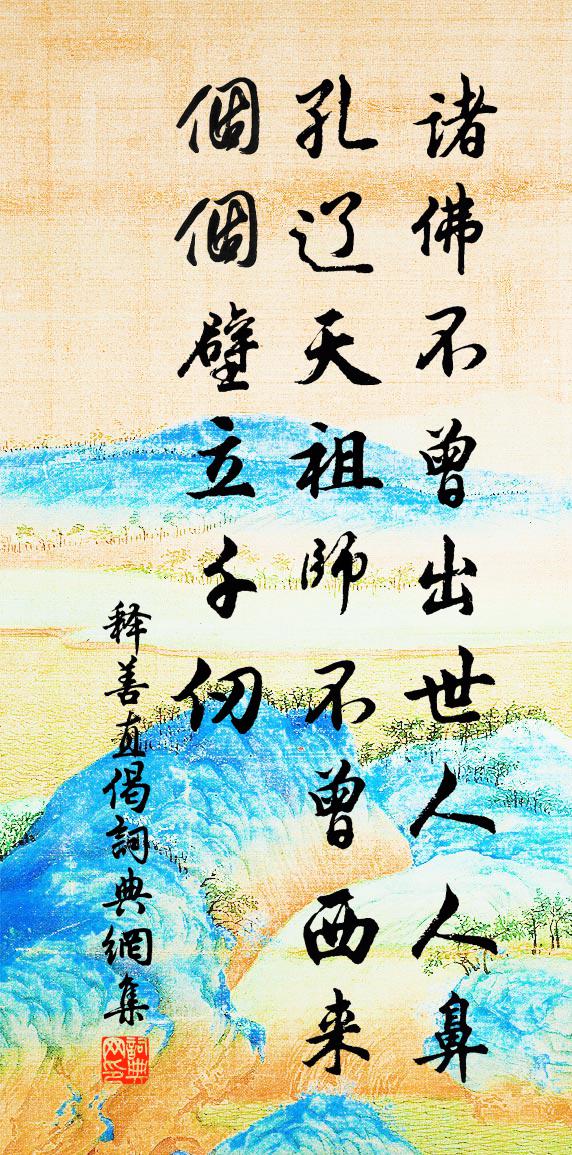 諸佛不曾出世人人鼻
孔辽天祖師不曾西来
個個壁立千仞
释善直偈詞典網集
詞典网印